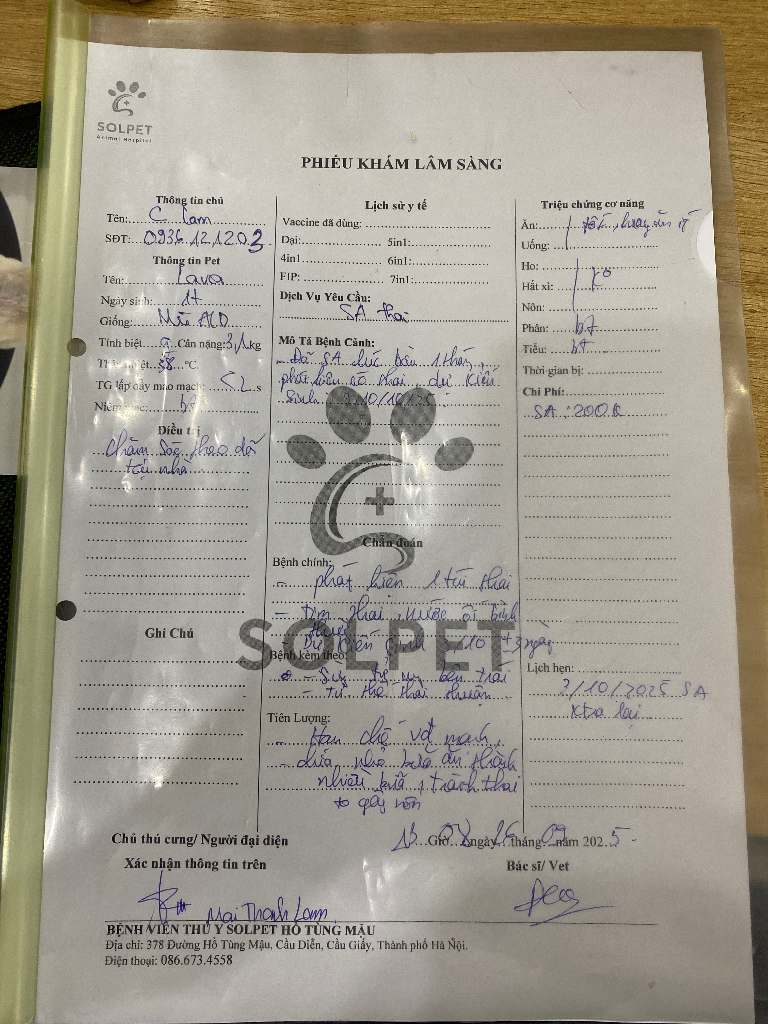 SOLPET
Animal Hospital
PHIẾU KHÁM LÂM SÀNG
Thông tin chủ
Tên: C Lam
SĐT: 0936.121203
Thông tin Pet
Tên: Lava
Ngày sinh: 1t
Giống: Mèo ALD
Tính biệt: Cân nặng: 3,1 kg
Thân nhiệt: 38 °C
TG lấp đầy mao mạch: <2 s
Niêm mạc: bt
Điều trị
Chăm sóc theo dõi
tại nhà
Ghi Chú
Lịch sử y tế
Vaccine đã dùng:
Dại: 5in1:
4in1 6in1:
FIP: 7in1:
Dịch Vụ Yêu Cầu:
SA thai
Mô Tả Bệnh Cảnh:
- Đã SA lúc bầu 1 tháng,
phát hiện có thai, dự kiến
sinh 3/10/10/25
SOLPET
Chẩn đoán
Bệnh chính:
- phát hiện 1 túi thai
- tim thai, nước ối bình
thường
- Dự kiến sinh /10 ± 3 ngày
Bệnh kèm theo:
bên trái
- tư thế thai thuận
Tiên Lượng:
- Hạn chế vđ mạnh,
- chia nhỏ bữa ăn thành
nhiều bữa, tránh thai
to gây nôn
Triệu chứng cơ năng
Ăn: tốt,
Uống:
Ho:
Hắt xì: Ko
Nôn:
Phân: bt
Tiểu: bt
Thời gian bị:
Chi Phí:
SA: 200k
Lịch hẹn:
2/10/2025 SA
ktra lại
Chủ thú cưng/ Người đại diện
Xác nhận thông tin trên
Mai Thanh Lam
13 Giờ 08 Ngày 26 tháng 09 năm 2025
Bác sĩ/ Vet
BỆNH VIỆN THÚ Y SOLPET HỒ TÙNG MẬU
Địa chỉ: 378 Đường Hồ Tùng Mậu, Cầu Diễn, Cầu Giấy, Thành phố Hà Nội.
Điện thoại: 086.673.4558